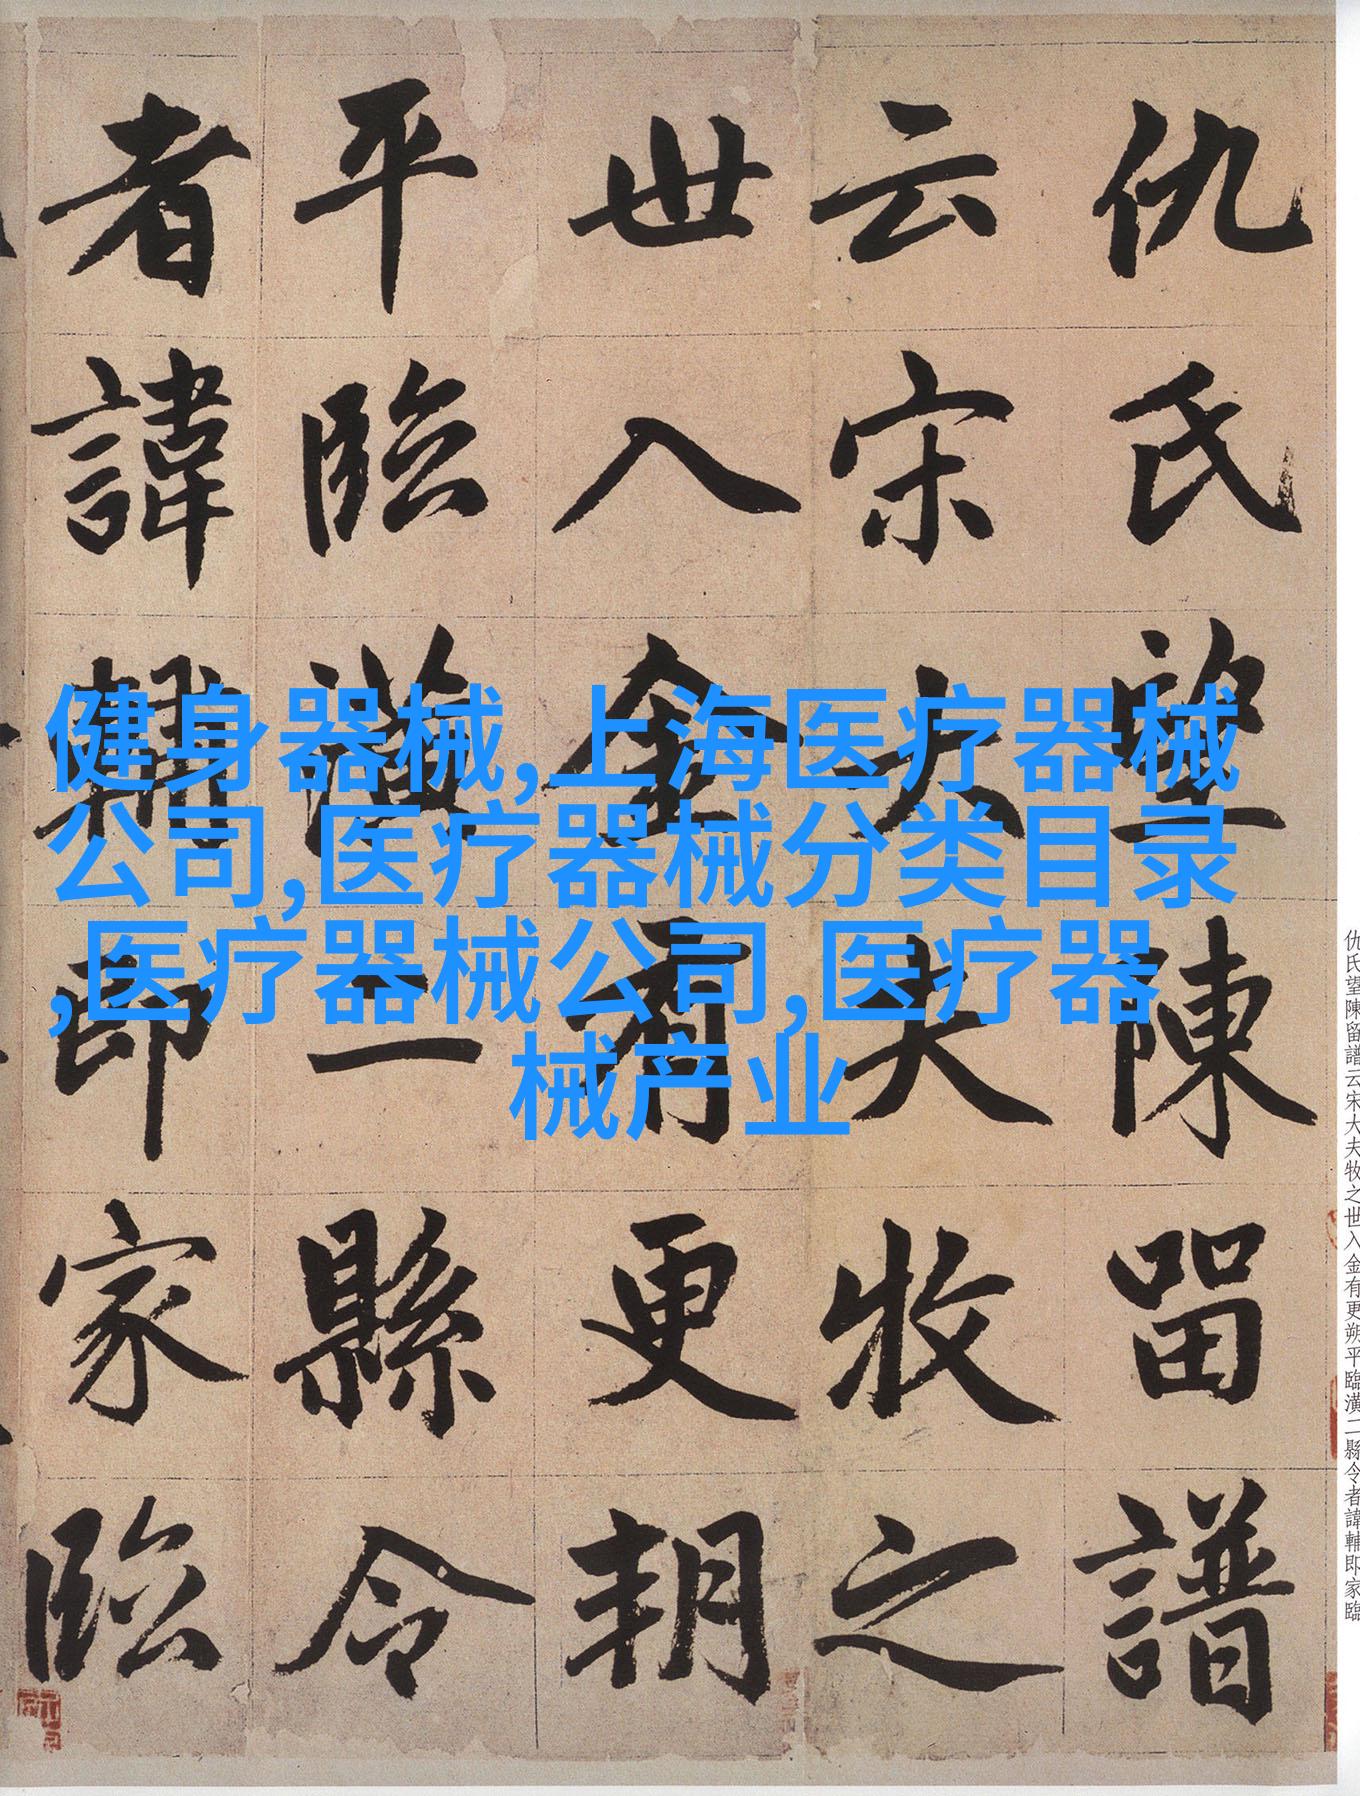 仇氏望陳留譜
云宋大夫牧之
世入金有更朔
平臨潢二縣令
者諱輔即家臨
健身器械,上海医疗器械
公司,医疗器械分类目录
,医疗器械公司,医疗器
械产业
仇氏望陳留譜云宋大夫牧之世入金有更朔平臨潢二縣令者諱輔即家臨